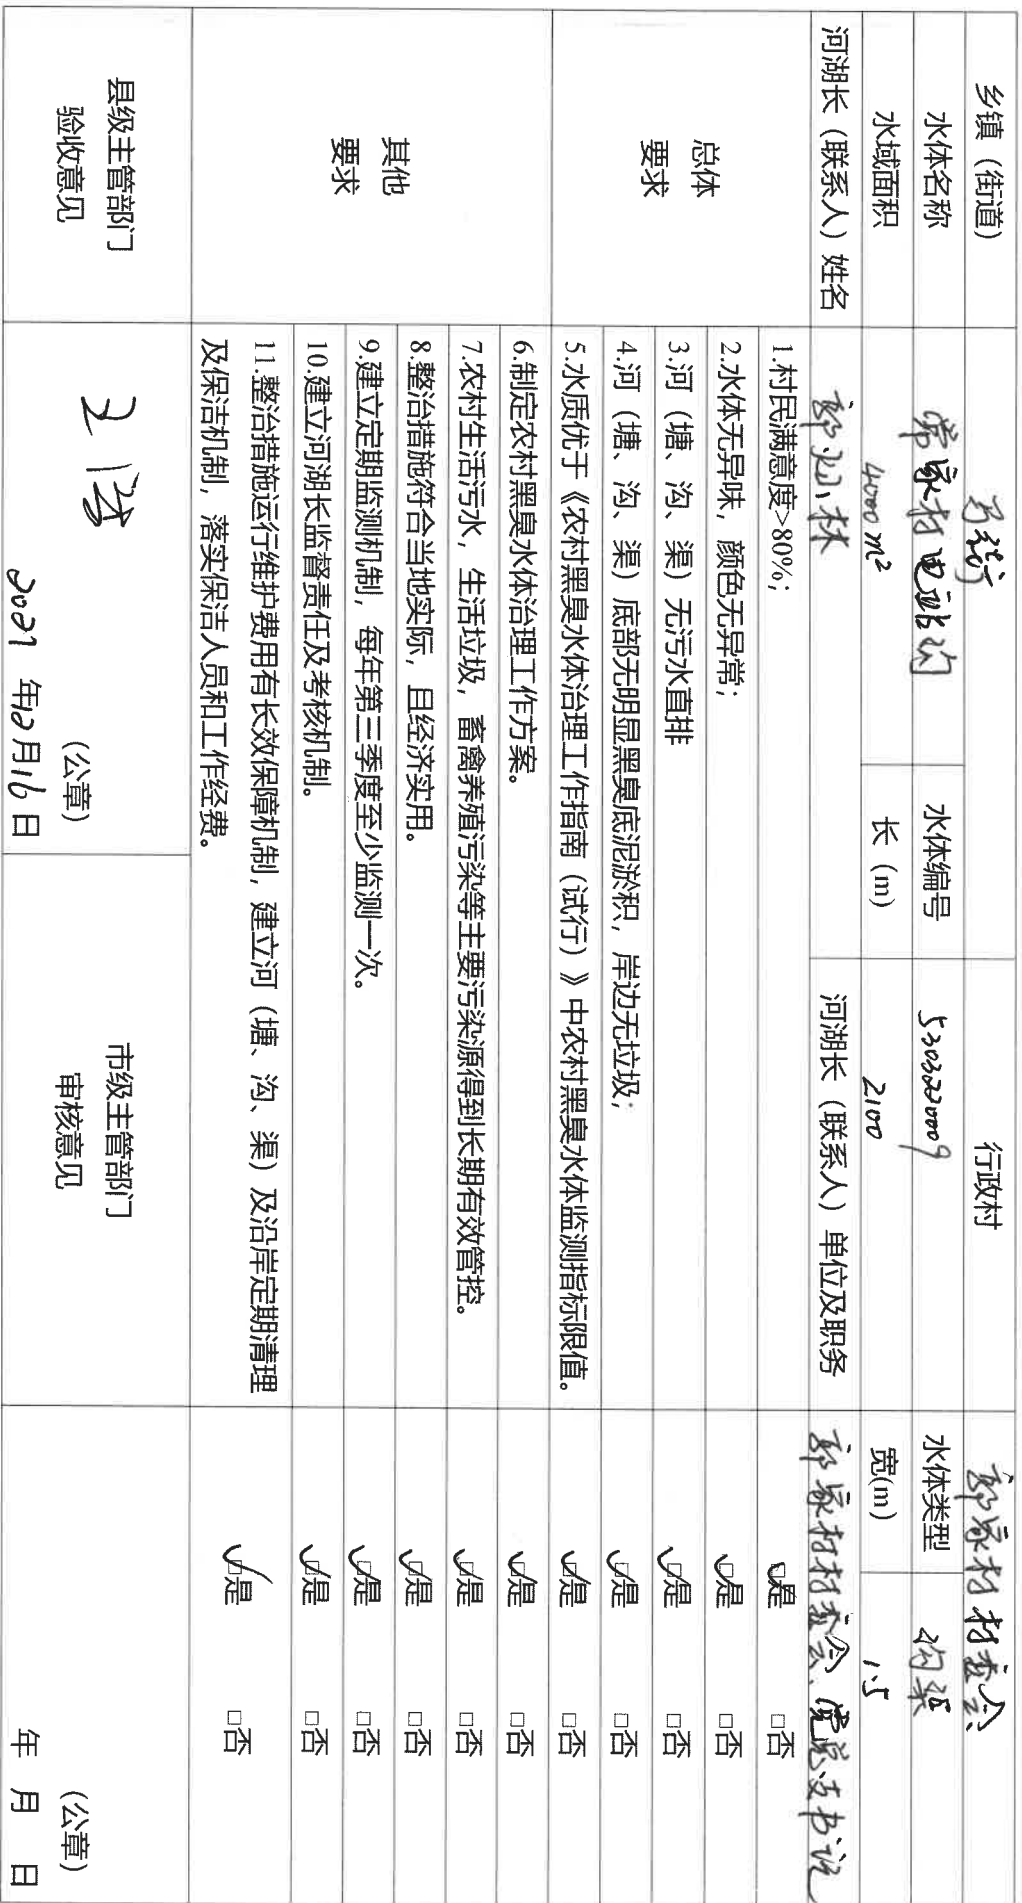 乡镇（街道）
行政村
郭家村村委会
水体名称
常家村电站沟
水体编号
5303220009
水体类型
沟渠
水域面积
4000m²
长（m）
2100
宽(m)
1.5
河湖长（联系人）姓名
河湖长（联系人）单位及职务
郭家村村委会、党总支书记
总体
要求
1.村民满意度>80%；
是 □否
2.水体无异味，颜色无异常；
□是 □否
3.河（塘、沟、渠）无污水直排
□是 □否
4.河（塘、沟、渠）底部无明显黑臭底泥淤积，岸边无垃圾；
□是 □否
5.水质优于《农村黑臭水体治理工作指南（试行）》中农村黑臭水体监测指标限值。
□是 □否
其他
要求
6.制定农村黑臭水体治理工作方案。
□是 □否
7.农村生活污水，生活垃圾，畜禽养殖污染等主要污染源得到长期有效管控。
□是 □否
8.整治措施符合当地实际，且经济实用。
□是 □否
9.建立定期监测机制，每年第三季度至少监测一次。
□是 □否
10.建立河湖长监督责任及考核机制。
□是 □否
11.整治措施运行维护费用有长效保障机制，建立河（塘、沟、渠）及沿岸定期清理
及保洁机制，落实保洁人员和工作经费。
□是 □否
县级主管部门
验收意见
（公章）
2021年12月16日
市级主管部门
审核意见
（公章）
年 月 日